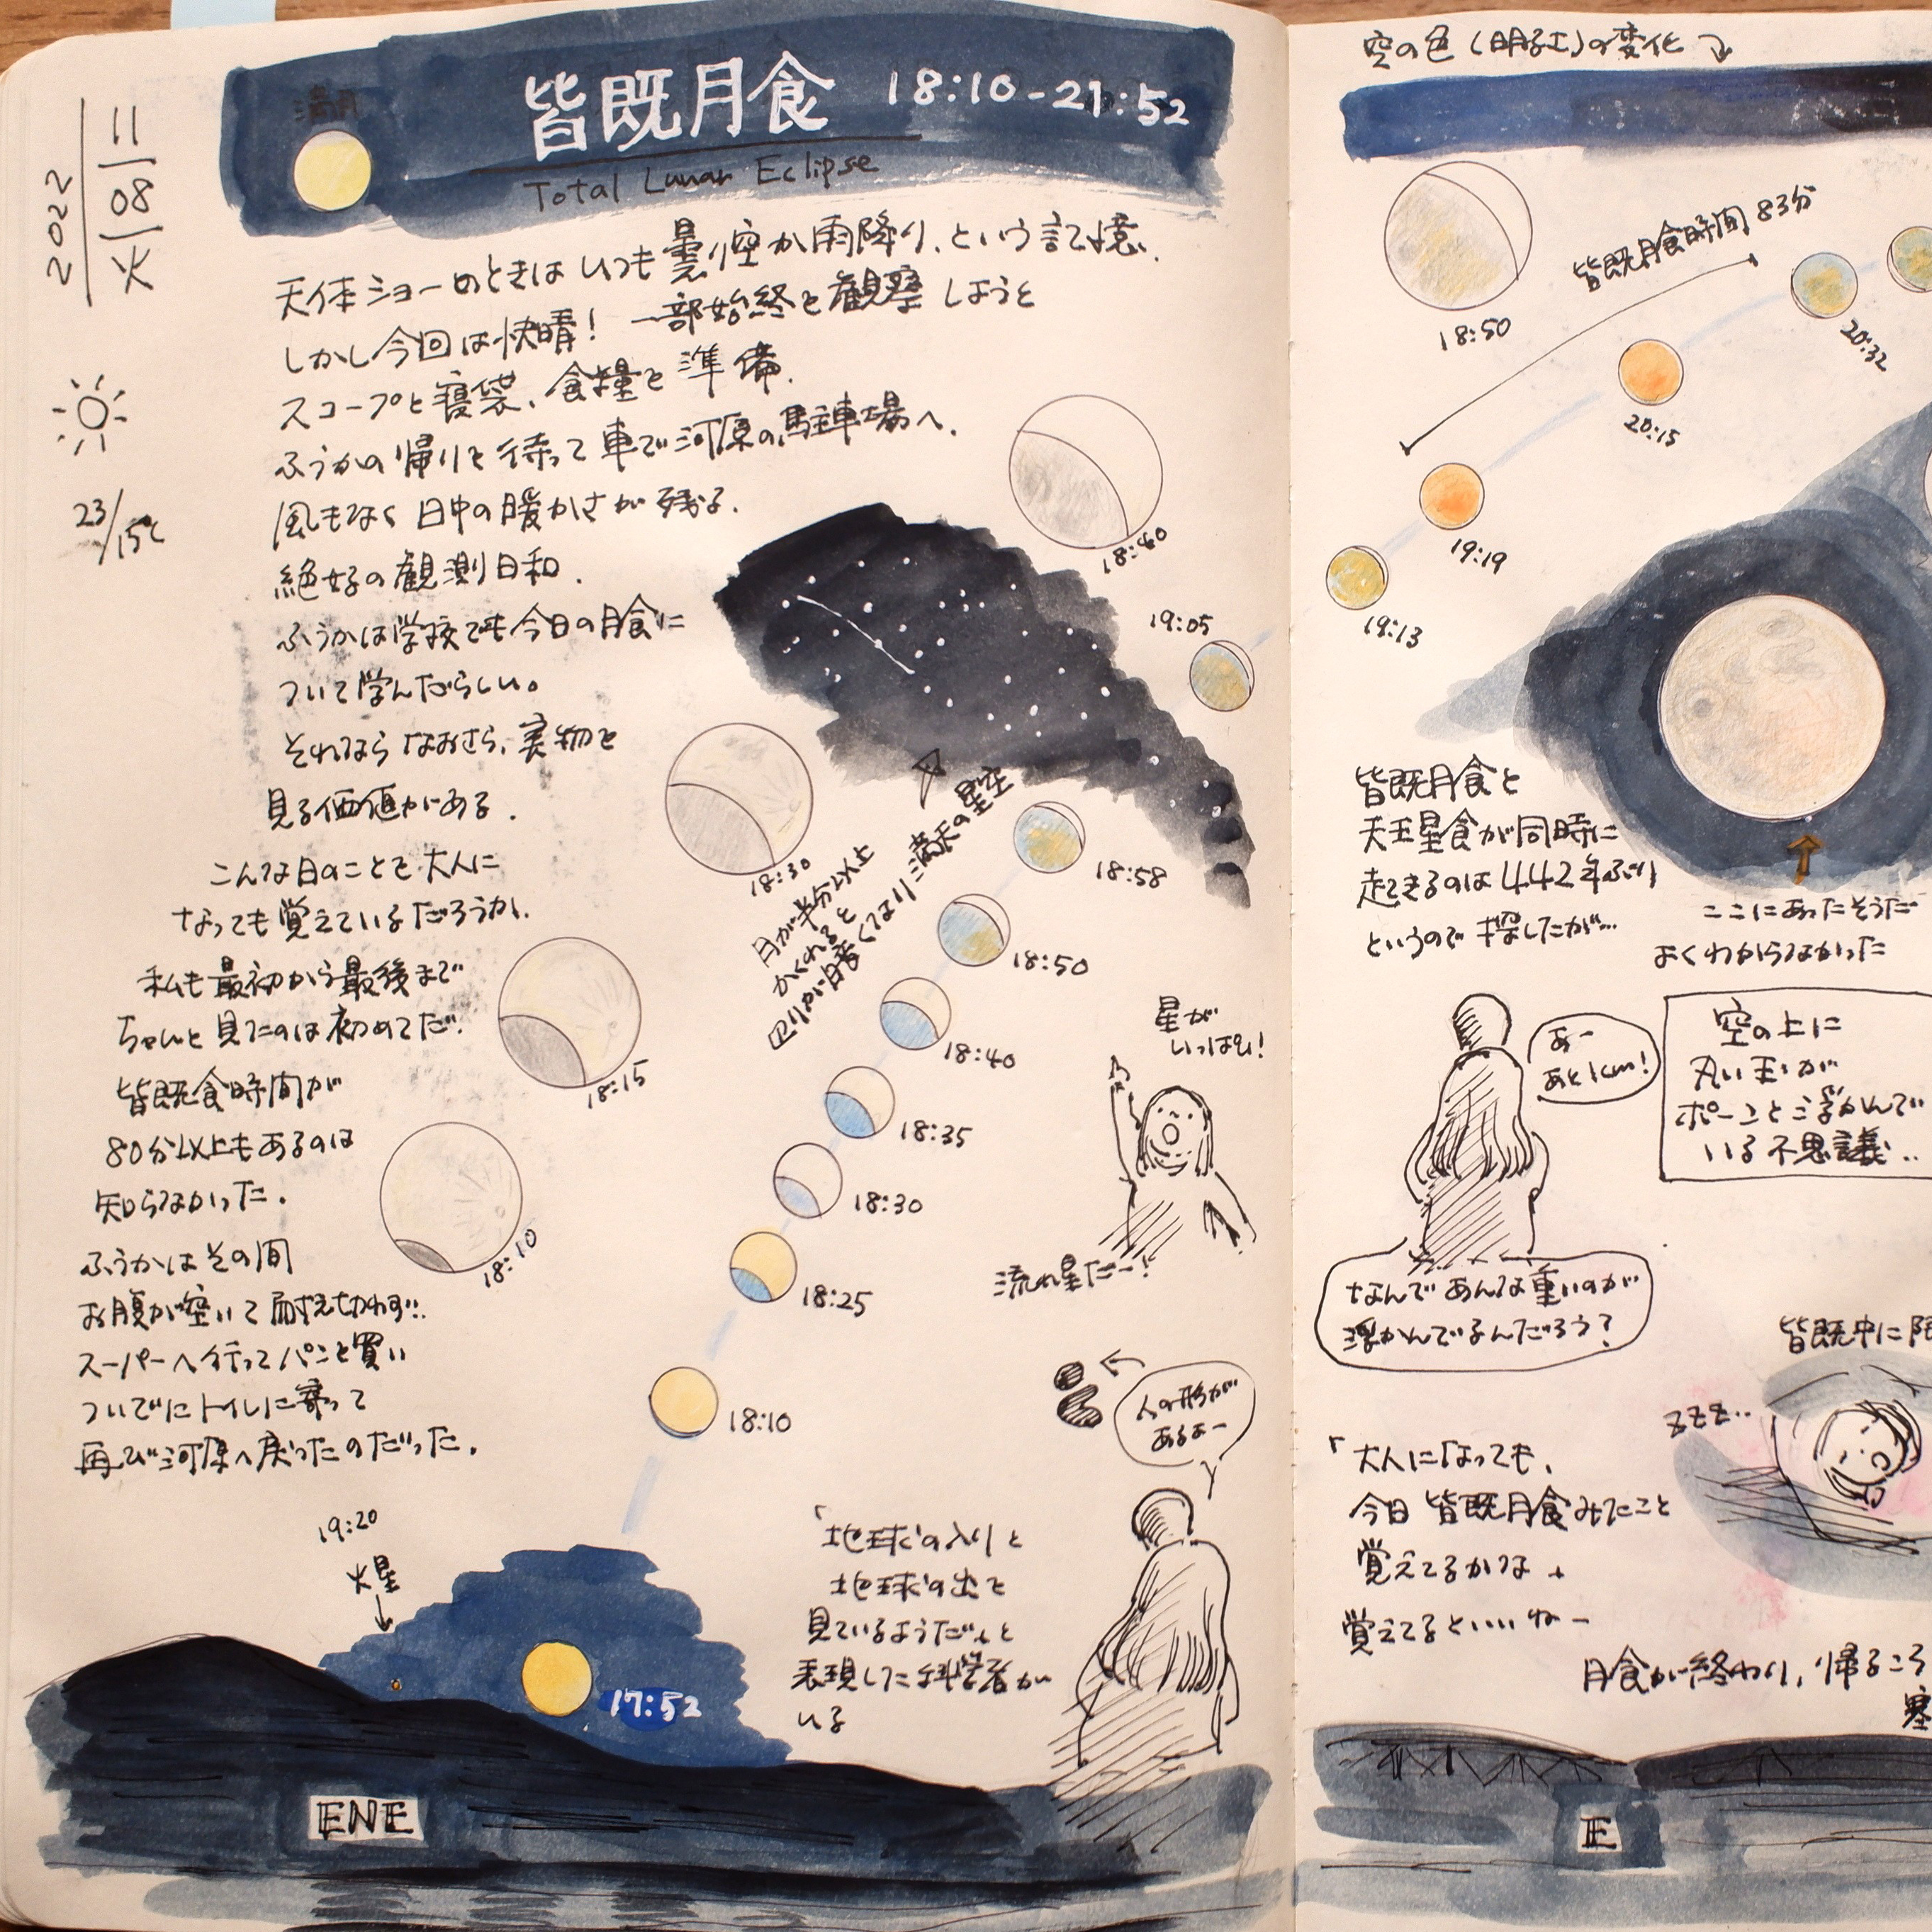 2022
11/08/火
23/15℃
満月
皆既月食 18:10-21:52
Total Lunar Eclipse
天体ショーのときはいつも曇り空か雨降り、という記憶、
しかし今回は快晴! 一部始終を観察しようと
スコープと寝袋、食糧を準備.
ふうかの帰りを待って車で河原の駐車場へ.
風もなく日中の暖かさが残る.
絶好の観測日和.
ふうかは学校でも今日の月食に
ついて学んだらしい。
それならなおさら、実物を
見る価値がある.
こんな日のことを大人に
なっても覚えているだろうか.
私も最初から最後まで
ちゃんと見たのは初めてだ.
皆既食時間が
80分以上もあるのは
知らなかった.
ふうかはその間
お腹が空いて耐え切れず..
スーパーへ行ってパンを買い
ついでにトイレに寄って
再び河原へ戻ったのだった.
18:40
18:30
18:15
18:10
19:05
18:58
18:50
18:40
18:35
18:30
18:25
18:10
月が半分以上
かくれると
辺りが暗くなり満天の星空
星が
いっぱい!
流れ星だー!
人の形が
あるよー
「地球の入りと
地球の出を
見ているようだ」と
表現した科学者が
いる
19:20
火星
17:52
ENE
空の色(明るさ)の変化
18:50
皆既月食時間 83分
20:32
20:15
19:19
19:13
皆既月食と
天王星食が同時に
起きるのは442年ぶり
というので探したが…
ここにあったそうだ
よくわからなかった
あー
あと1cm!
空の上に
丸い玉が
ポーンと浮かんで
いる不思議..
なんであんな重いのが
浮かんでるんだろう?
皆既中に
zzz..
「大人になっても、
今日皆既月食みたこと
覚えてるかな」
覚えてるといいねー
月食が終わり、帰るころ
寒
E